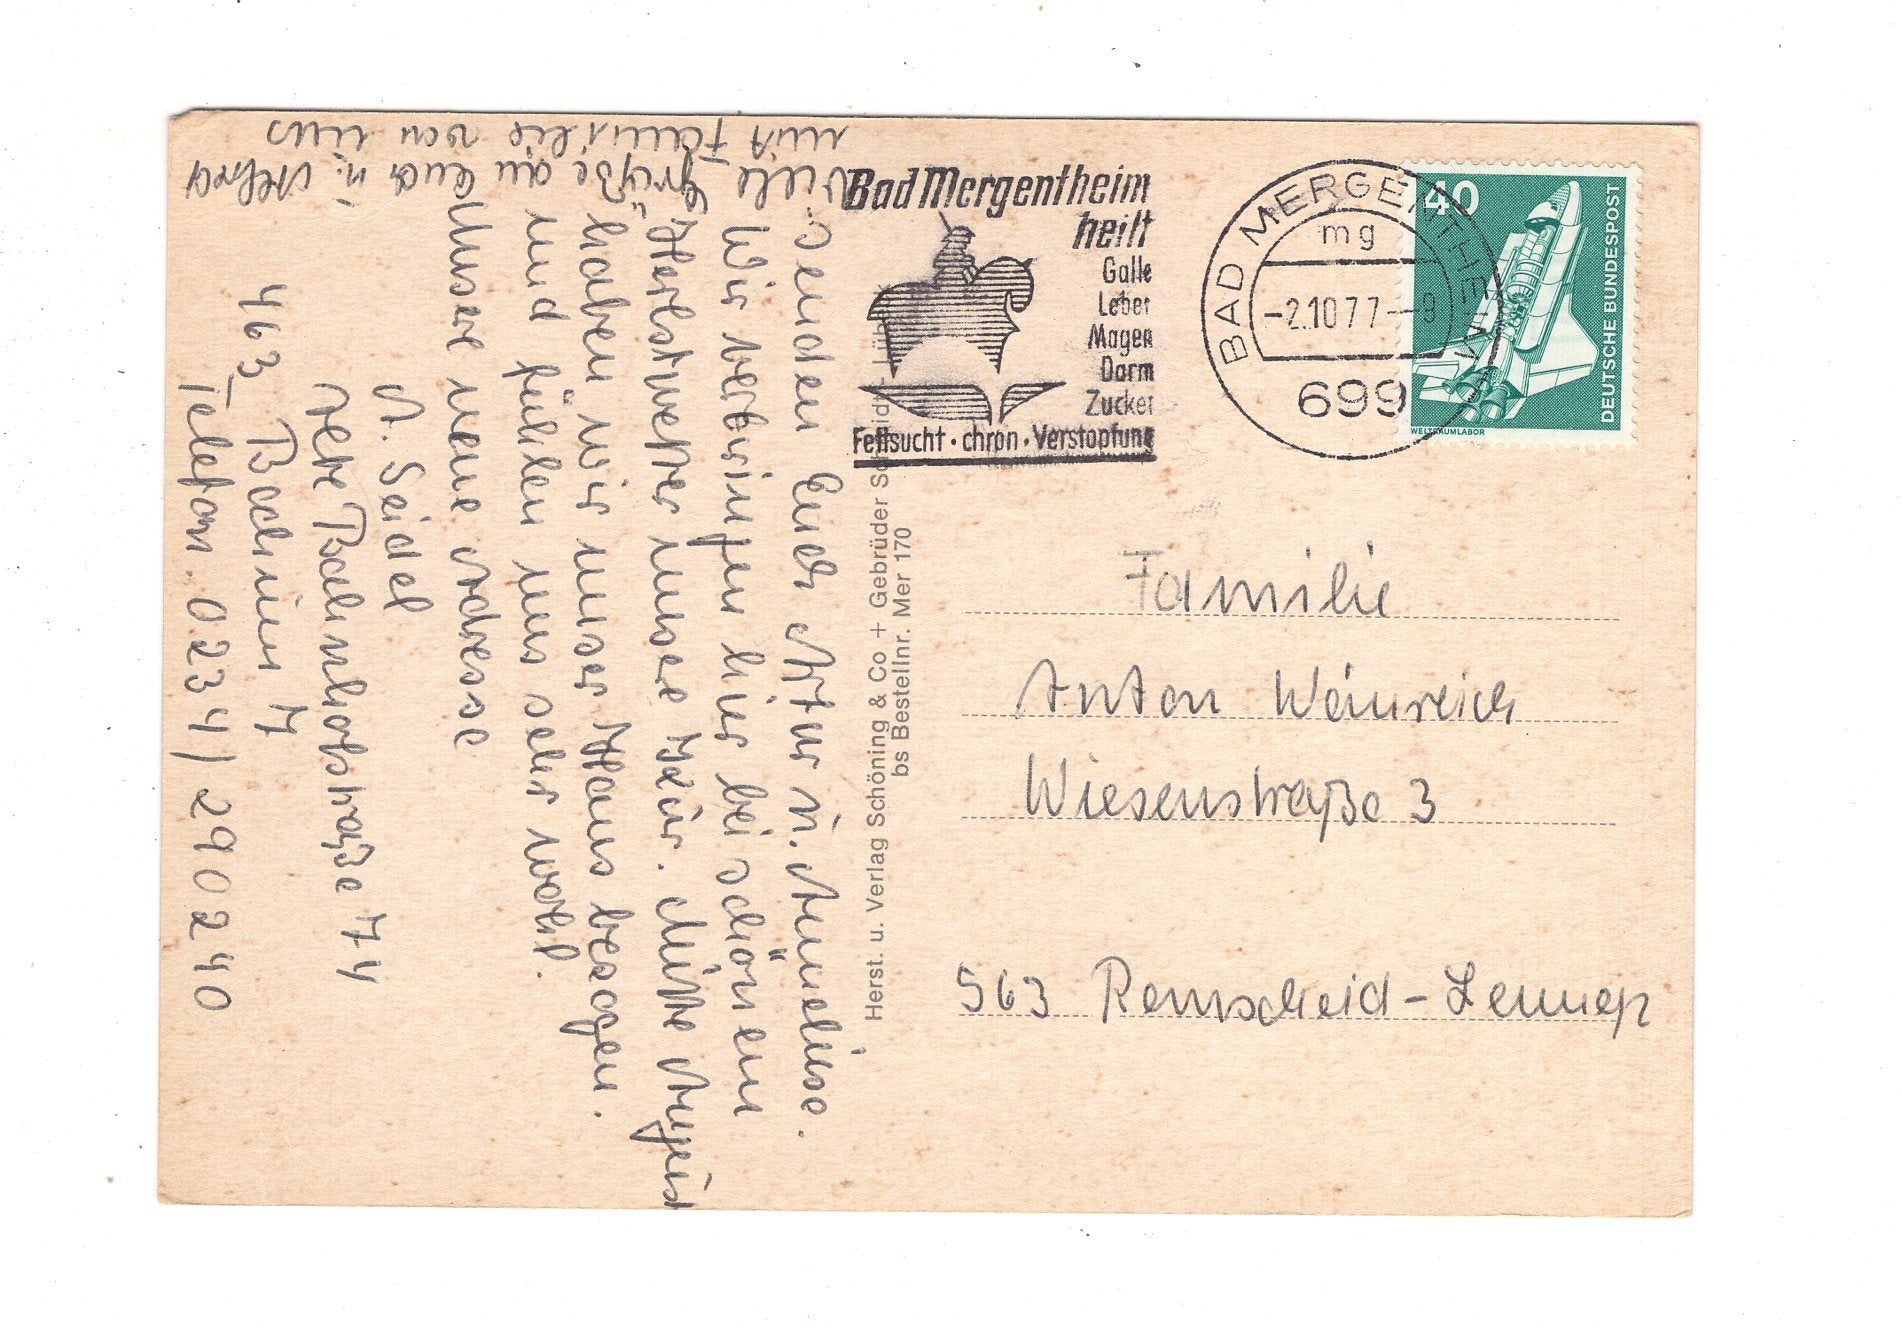 Bad Mergentheim
heilt
Galle
Leber
Magen
Darm
Zucker
Fettsucht · chron · Verstopfung
BAD MERGENTHEIM
mg
-2.10.77--9
699
40
DEUTSCHE BUNDESPOST
WELTRAUMLABOR
Familie
Anton Weinreich
Wiesenstraße 3
563 Remscheid-Lennep
Herst. u. Verlag Schöning & Co + Gebrüder Schmidt · Lübeck
bs Bestellnr. Mer 170
Viele Grüße an Euch u.
mit Familie von uns
senden Euch Artur u. Anneliese.
Wir verbringen hier bei schönem
Herbstwetter unsere Kur. Mitte August
haben wir unser Haus bezogen.
und fühlen uns sehr wohl.
Unsere neue Adresse
A. Seidel
Alte Bahnhofstraße 74
463 Bochum 7
Telefon. 0234/290240